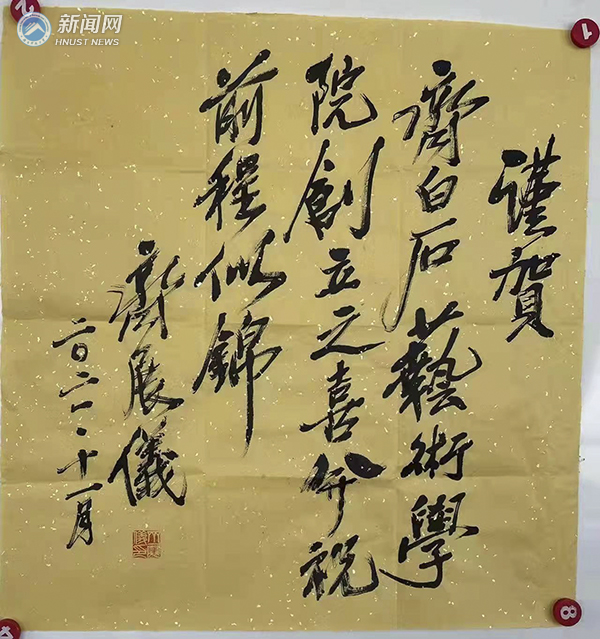 新闻网
HNUST NEWS
謹賀
齊白石藝術學
院創立之喜并祝
前程似錦
齊展儀
二〇二一·十一月